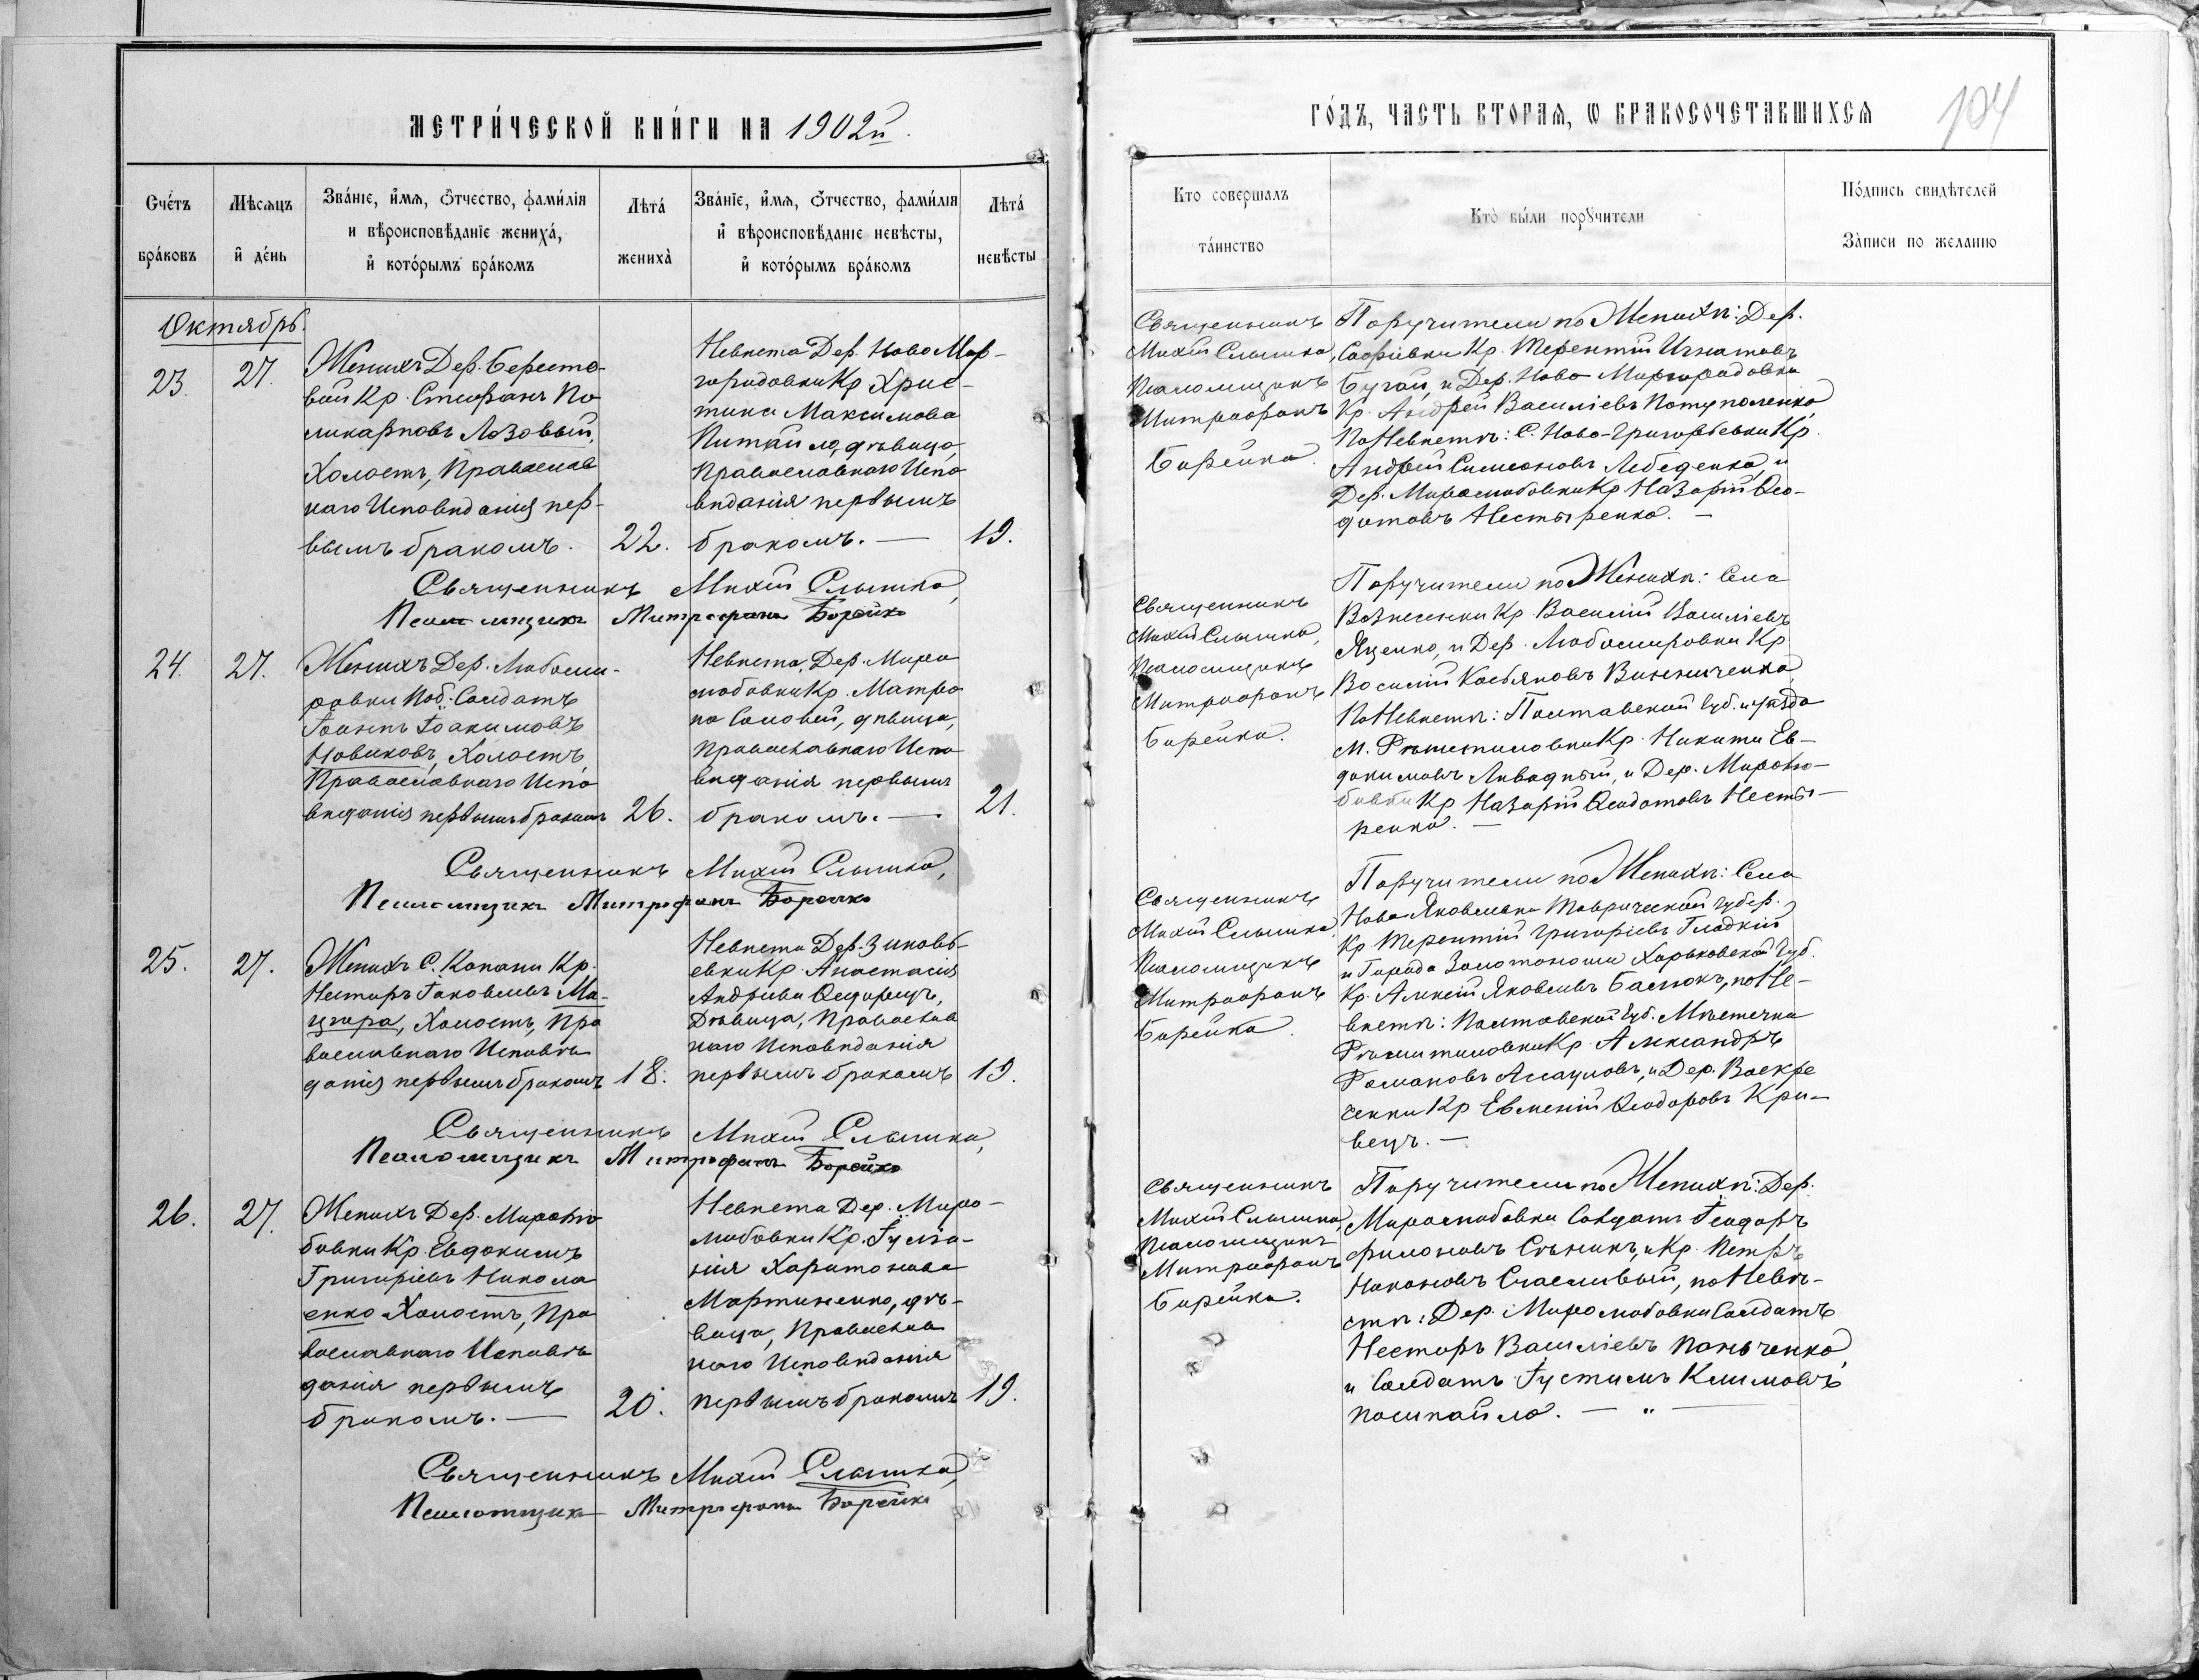 МЕТРИ́ЧЕСКОЙ КНИ́ГИ НА 1902й.
Сче́тъ бра́ковъ
Мѣсяцъ и де́нь
Зва́нїе, и҆́мя, ѻ҆́тчество, фами́лїя и вѣроисповѣ́данїе жениха̀, и҆ кото́рымъ бра́комъ
Лѣта́ жениха̀
Зва́нїе, и҆́мя, ѻ҆́тчество, фами́лїя и҆ вѣроисповѣ́данїе невѣ́сты, и҆ кото́рымъ бра́комъ
Лѣта́ невѣ́сты
Октябрь.
23.
27.
Женихъ Дер. Бересто-
вой Кр. Стефанъ По
ликарповъ Лозовый,
Холостъ, Православ
наго Исповѣданія пер-
вымъ бракомъ.
22.
Невѣста Дер. Ново Мир-
городовки Кр. Хрис-
тина Максимова
Питайло, дѣвица,
Православнаго Испо
вѣданія первымъ
бракомъ. —
19.
Священникъ Михаій Слышко,
Псаломщикъ Митрофанъ Борейко
24.
27.
Женихъ Дер. Любоми-
ровки Коб. Солдатъ
Іоаннъ Іоакимовъ
Новиковъ, Холостъ,
Православнаго Испо
вѣданія первымъ бракомъ
26.
Невѣста, Дер. Миро
любовки Кр. Матро
на Соловей, дѣвица,
Православнаго Испо
вѣданія первымъ
бракомъ. —
21.
Священникъ Михаій Слышко,
Псаломщикъ Митрофанъ Борейко
25.
27.
Женихъ С. Копани Кр.
Несторъ Іаковлевъ Ма-
цюра, Холостъ, Пра
вославнаго Исповѣ
данія первымъ бракомъ
18.
Невѣста Дер. Зиновь-
евки Кр. Анастасія
Андріева Ѳедорецъ,
Дѣвица, Православ
наго Исповѣданія
первымъ бракомъ
19.
Священникъ Михаій Слышко,
Псаломщикъ Митрофанъ Борейко
26.
27.
Женихъ Дер. Миролю
бовки Кр. Евдокимъ
Григоріевъ Никола
енко Холостъ, Пра
вославнаго Исповѣ
данія первымъ
бракомъ. —
20.
Невѣста Дер. Миро-
любовки Кр. Іуліа-
нія Харитонова
Мартиненко, дѣ-
вица, Православ
наго Исповѣданія
первымъ бракомъ
19.
Священникъ Михаій Слышко,
Псаломщикъ Митрофанъ Борейко
ГО́ДЪ, ЧАСТЬ ВТОРАЯ, Ѡ БРАКОСОЧЕТАВШИХСЯ
104
Кто совершалъ та́инство
Кто̀ бы́ли порꙋчители
По́дпись свидѣ́телей За̀писи по желанїю
Священникъ
Михаій Слышко,
Псаломщикъ
Митрофанъ
Борейко.
Поручители по Женихѣ: Дер.
Софіевки Кр. Терентій Игнатовъ
Бугай, и Дер. Ново Миргородовки
Кр. Андрей Василіевъ Потуполенко,
По Невѣстѣ: С. Ново-Григорьевки Кр.
Андрей Симеоновъ Лебеденко, и
Дер. Миролюбовки Кр. Назарій Ѳео-
дотовъ Нестыренко. —
Священникъ
Михаій Слышко,
Псаломщикъ
Митрофанъ
Борейко.
Поручители по Женихѣ: Села
Вознесенки Кр. Василій Василіевъ
Яценко, и Дер. Любомировки Кр.
Василій Касьяновъ Винниченко,
По Невѣстѣ: Полтавской Губ. и уѣзда
М. Рѣшетиловки Кр. Никита Ев-
докимовъ Ливадный, и Дер. Миролю-
бовки Кр. Назарій Ѳеодотовъ Несты-
ренко. —
Священникъ
Михаій Слышко,
Псаломщикъ
Митрофанъ
Борейко.
Поручители по Женихѣ: Села
Ново Яковлевки Таврической Губер.
Кр. Терентій Григоріевъ Гладкій
и Города Золотоноши Харьковской Губ.
Кр. Алексій Яковлевъ Баснокъ, по Не-
вѣстѣ: Полтавской Губ. Мѣстечка
Рѣшитиловки Кр. Александръ
Романовъ, и Дер. Воскре
сенки Кр. Евменій Ѳеодоровъ Кри-
вецъ. —
Священникъ
Михаій Слышко,
Псаломщикъ
Митрофанъ
Борейко.
Поручители по Женихѣ: Дер.
Миролюбовки Солдатъ Ѳеодоръ
Филоновъ Сѣникъ, и Кр. Петръ
Никоновъ Счасливый, по Невѣ-
стѣ: Дер. Миролюбовки Солдатъ
Несторъ Василіевъ Панченко,
и Солдатъ Іустимъ Климовъ
Пошкайло. — " —